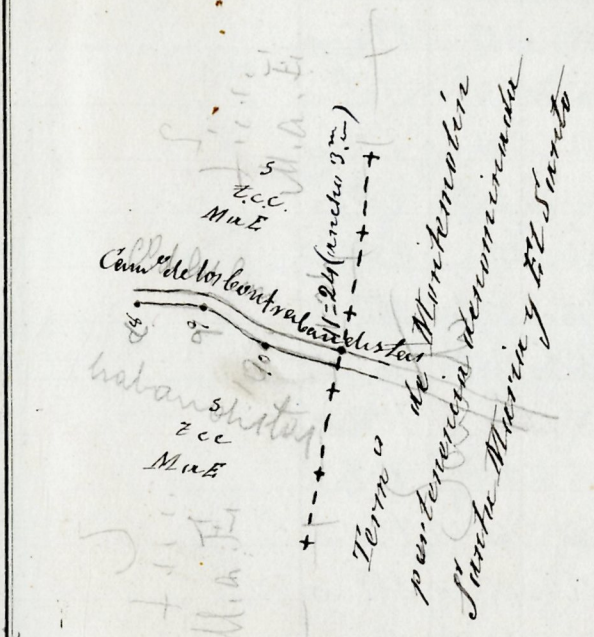 S
t.c.c.
M a E
Camo de los Contrabandistas
11=24 (ancho 3m)
S
t c c
M a E
Termo de Montemolin
pertenencia denominada
Santa Maria y El Santo